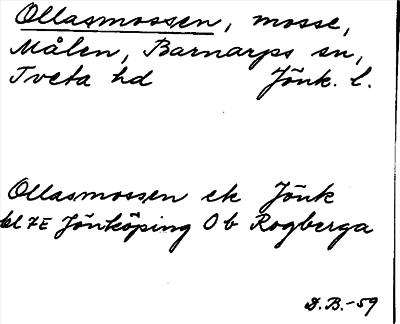 Ollasmossen, mosse,
Målen, Barnarps sn,
Tveta hd Jönk. l.
Ollasmossen ek Jönk
bl 7E Jönköping Ob Rogberga
D.B.-59